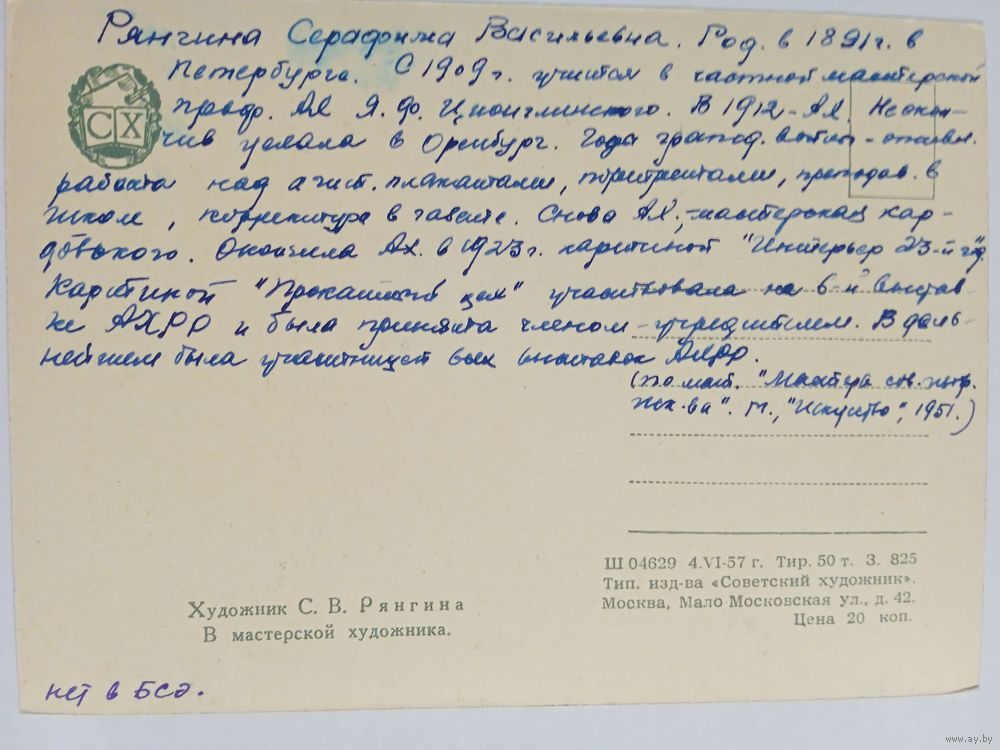 Рянгина Серафима Васильевна. Род. в 1891 г. в
Петербурге. С 1909 г. учится в частной мастерской
проф. АХ Я. Ф. Ционглинского. В 1912 - АХ. Не окон-
чив уехала в Оренбург. Годы гражд. войны -
работа над агит. плакатами, портретами, преподав. в
школе, в газете. Снова АХ, - мастерская Кар-
довского. Окончила Ах. в 1923 г. картиной "Интерьер 23-й год".
Картиной "Прокатный цех" участвовала на 6-й выстав-
ке АХРР и была принята членом - учредителем. В даль-
нейшем была участницей всех выставок АХРР.
(по мат. "Мастера сов. изобр.
иск-ва". М., "Искусство", 1951.)
СХ
Ш 04629 4.VI-57 г. Тир. 50 т. З. 825
Тип. изд-ва «Советский художник».
Москва, Мало Московская ул., д. 42.
Цена 20 коп.
Художник С. В. Рянгина
В мастерской художника.
нет в БСЭ.
www.ay.by